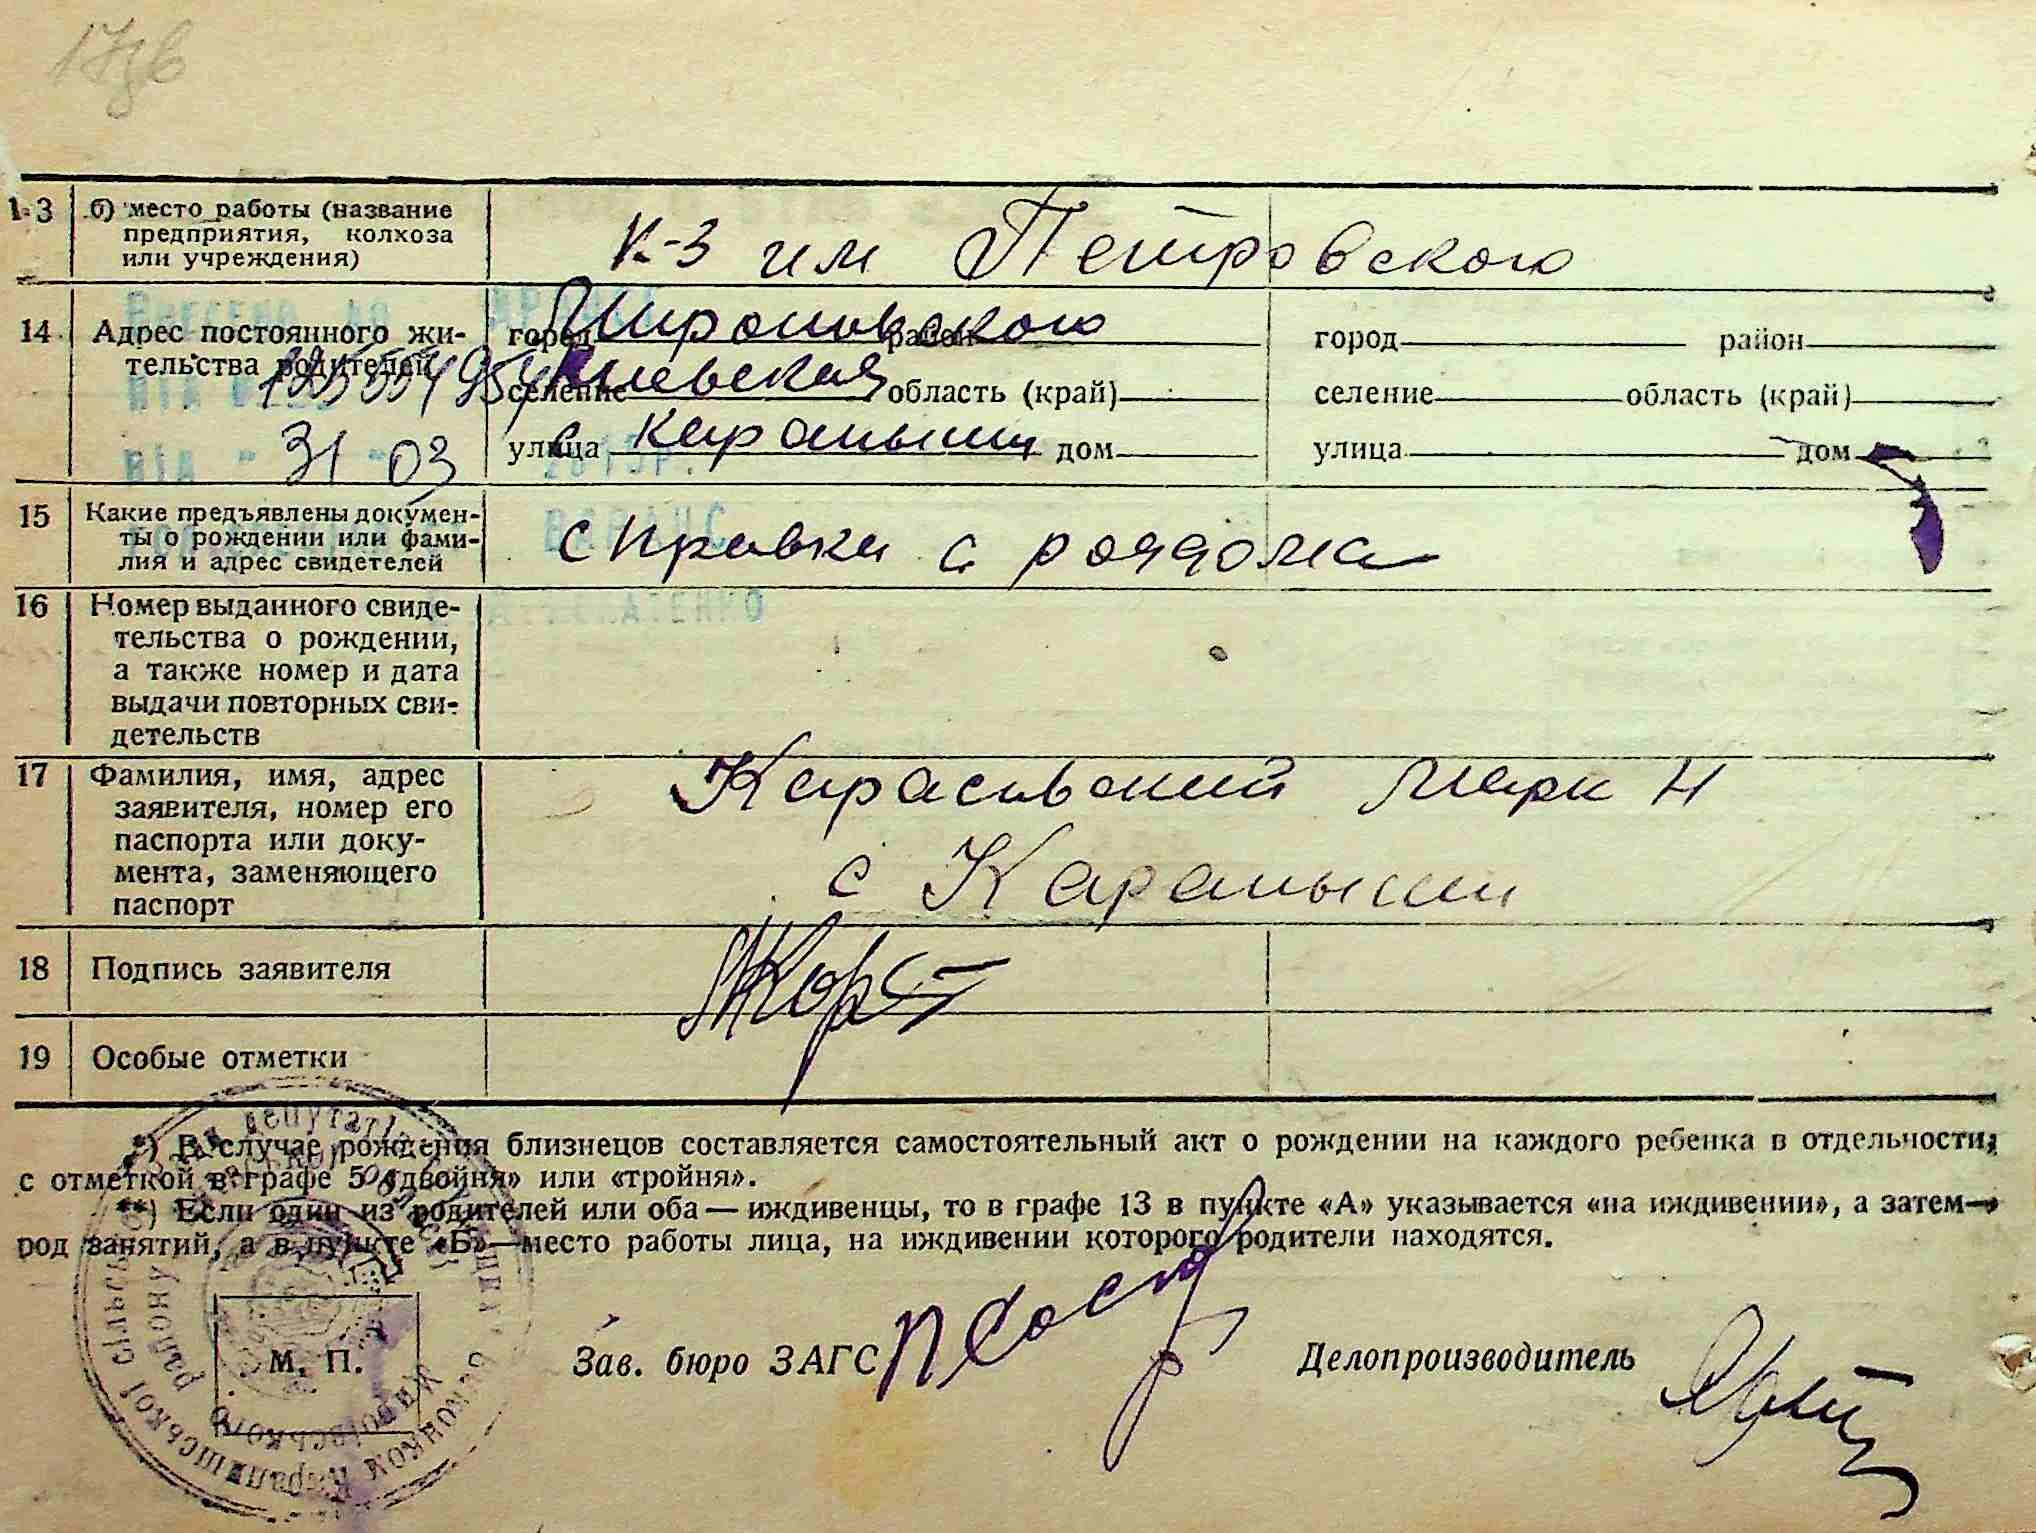 13 б) место работы (название
предприятия, колхоза
или учреждения)
к-з им Петровского
14 Адрес постоянного жи-
тельства родителей
город Мироновского район
селение Киевская область (край)
улица с Карапыши дом
город район
селение область (край)
улица дом
31 03
15 Какие предъявлены докумен-
ты о рождении или фами-
лия и адрес свидетелей
справка с роддома
16 Номер выданного свиде-
тельства о рождении,
а также номер и дата
выдачи повторных сви-
детельств
17 Фамилия, имя, адрес
заявителя, номер его
паспорта или доку-
мента, заменяющего
паспорт
Марк Н
с Карапыши
18 Подпись заявителя
19 Особые отметки
*) В случае рождения близнецов составляется самостоятельный акт о рождении на каждого ребенка в отдельности,
с отметкой в графе 5 «двойня» или «тройня».
**) Если один из родителей или оба — иждивенцы, то в графе 13 в пункте «А» указывается «на иждивении», а затем—
род занятий, а в пункте «Б»—место работы лица, на иждивении которого родители находятся.
М. П.
Зав. бюро ЗАГС
Делопроизводитель